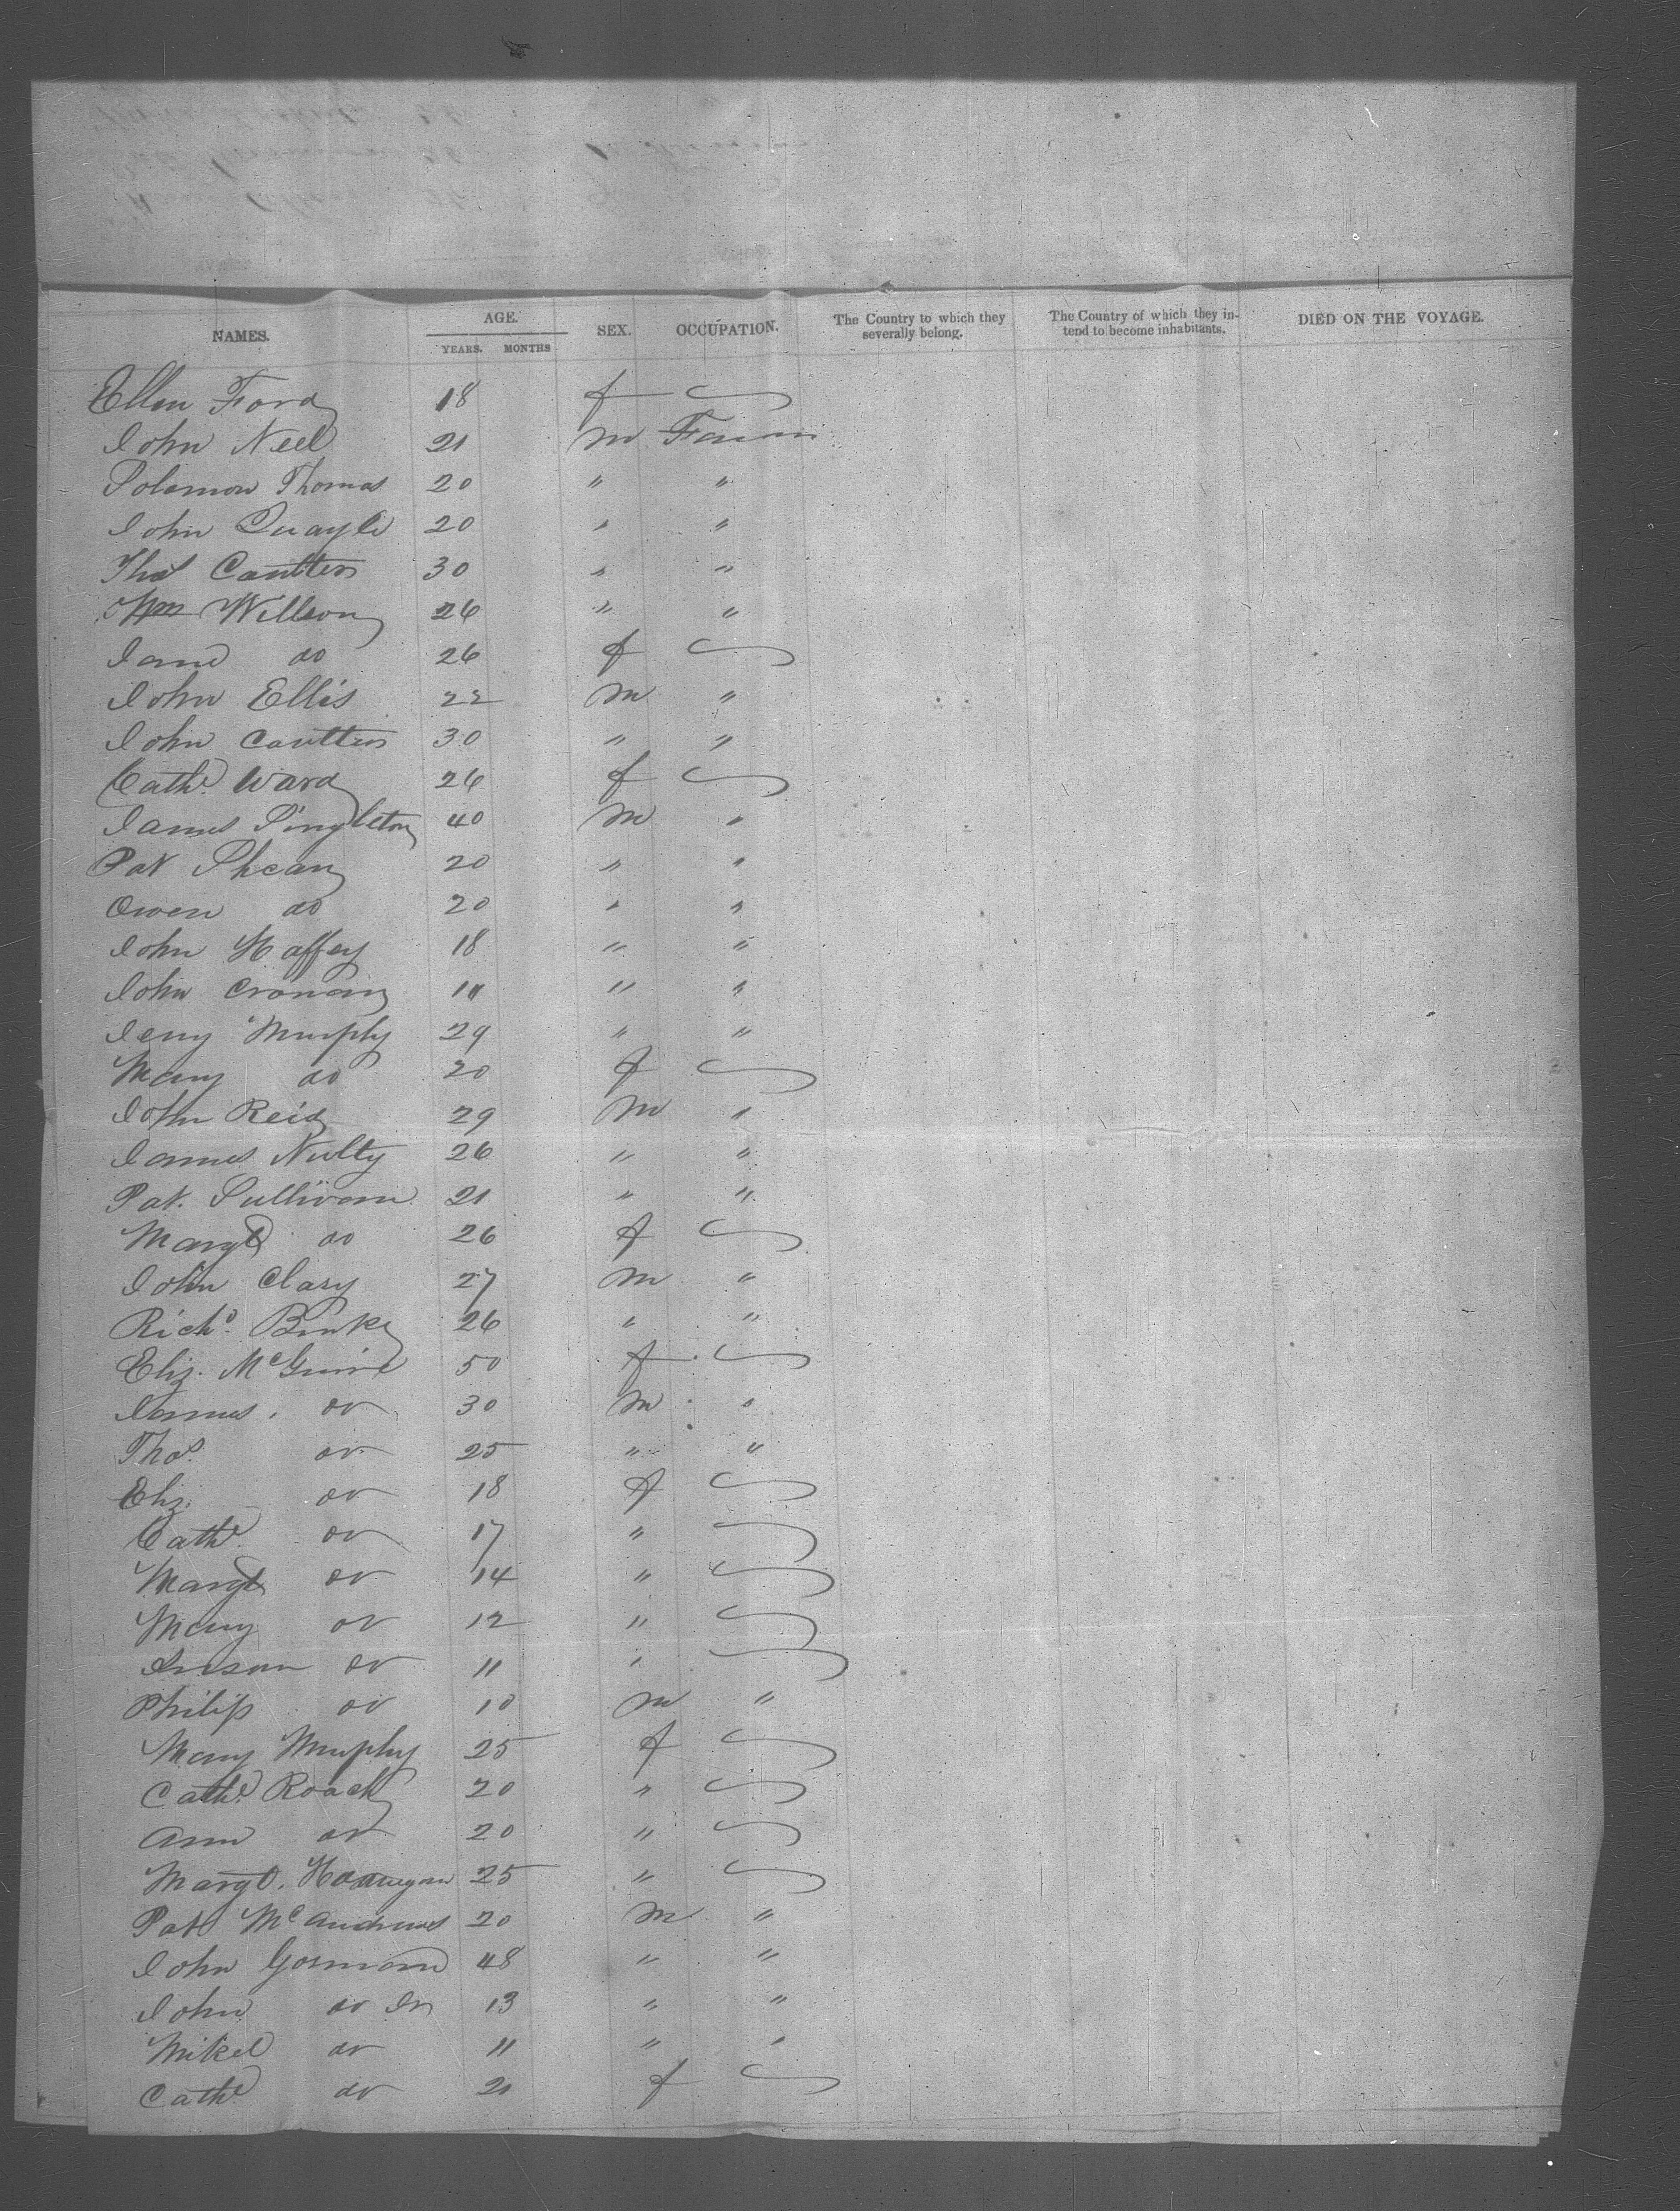 NAMES. AGE. SEX. OCCUPATION. The Country to which they severally belong. The Country of which they intend to become inhabitants. DIED ON THE VOYAGE.
YEARS. MONTHS
Ellen Ford 18 f
John Neel 21 m Farm
Solomon Thomas 20 " "
John Quayle 20 " "
Thos Caulters 30 " "
Wm Willson 26 " "
Jane do 26 f
John Ellis 22 m "
John Caulters 30 " "
Cathe. Ward 26 f
James Singleton 40 m "
Pat Shean 20 " "
Owen do 20 " "
John Haffey 18 " "
John Cronan " "
Jerry Murphy 29 " "
Mary do 20 f
John Reid 29 m "
James Nulty 26 " "
Pat. Sullivan 21 " "
Margt do 26 f
John Clary 27 m "
Richd. Burke 26 " "
Eliz. McGuire 50 f
James. do 30 m "
Thos. do 25 " "
Eliz. do 18 f
Cathe. do 17 "
Margt do 14 "
Mary do 12 "
Susan do 11 "
Philip do 10 m "
Mary Murphy 25 f
Cathe. Roach 20 "
Ann do 20 "
Margt. 25 "
Pat McAndrews 20 m "
John Gormand 48 " "
John do Jr 13 " "
Mikel do 11 " "
Cathe. do 21 f